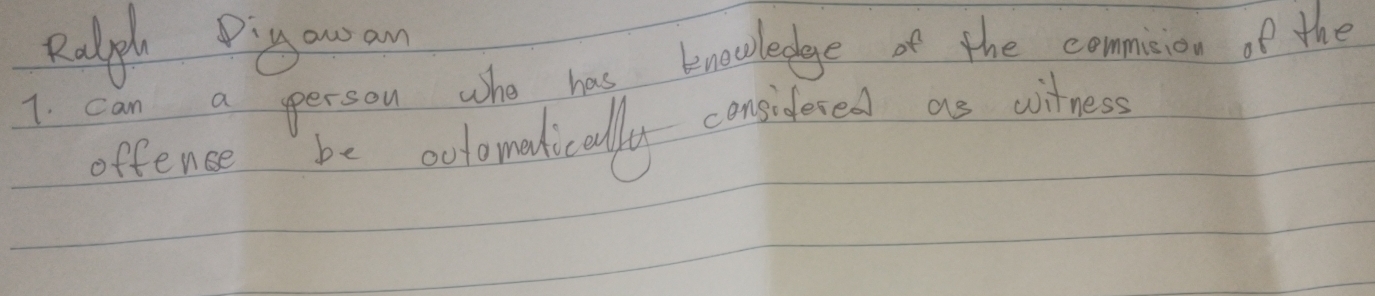 Ralph Diyawan
1. can a person who has knowledge of the commision of the
offense be automatically considered as witness